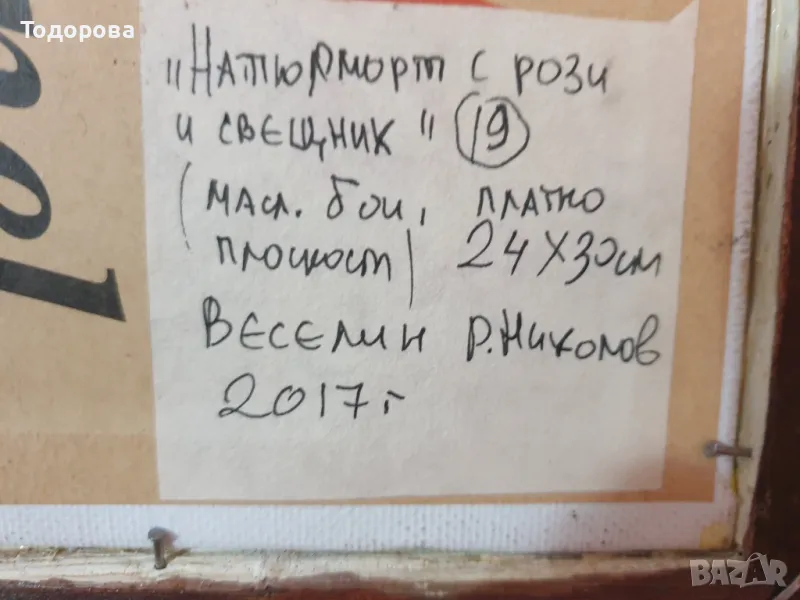 Тодорова
"Натюрморт с рози
и свещник" 19
(масл. бои, платно
плоскост) 24 х 30 см
Веселин Р. Николов
2017 г
BAZAR